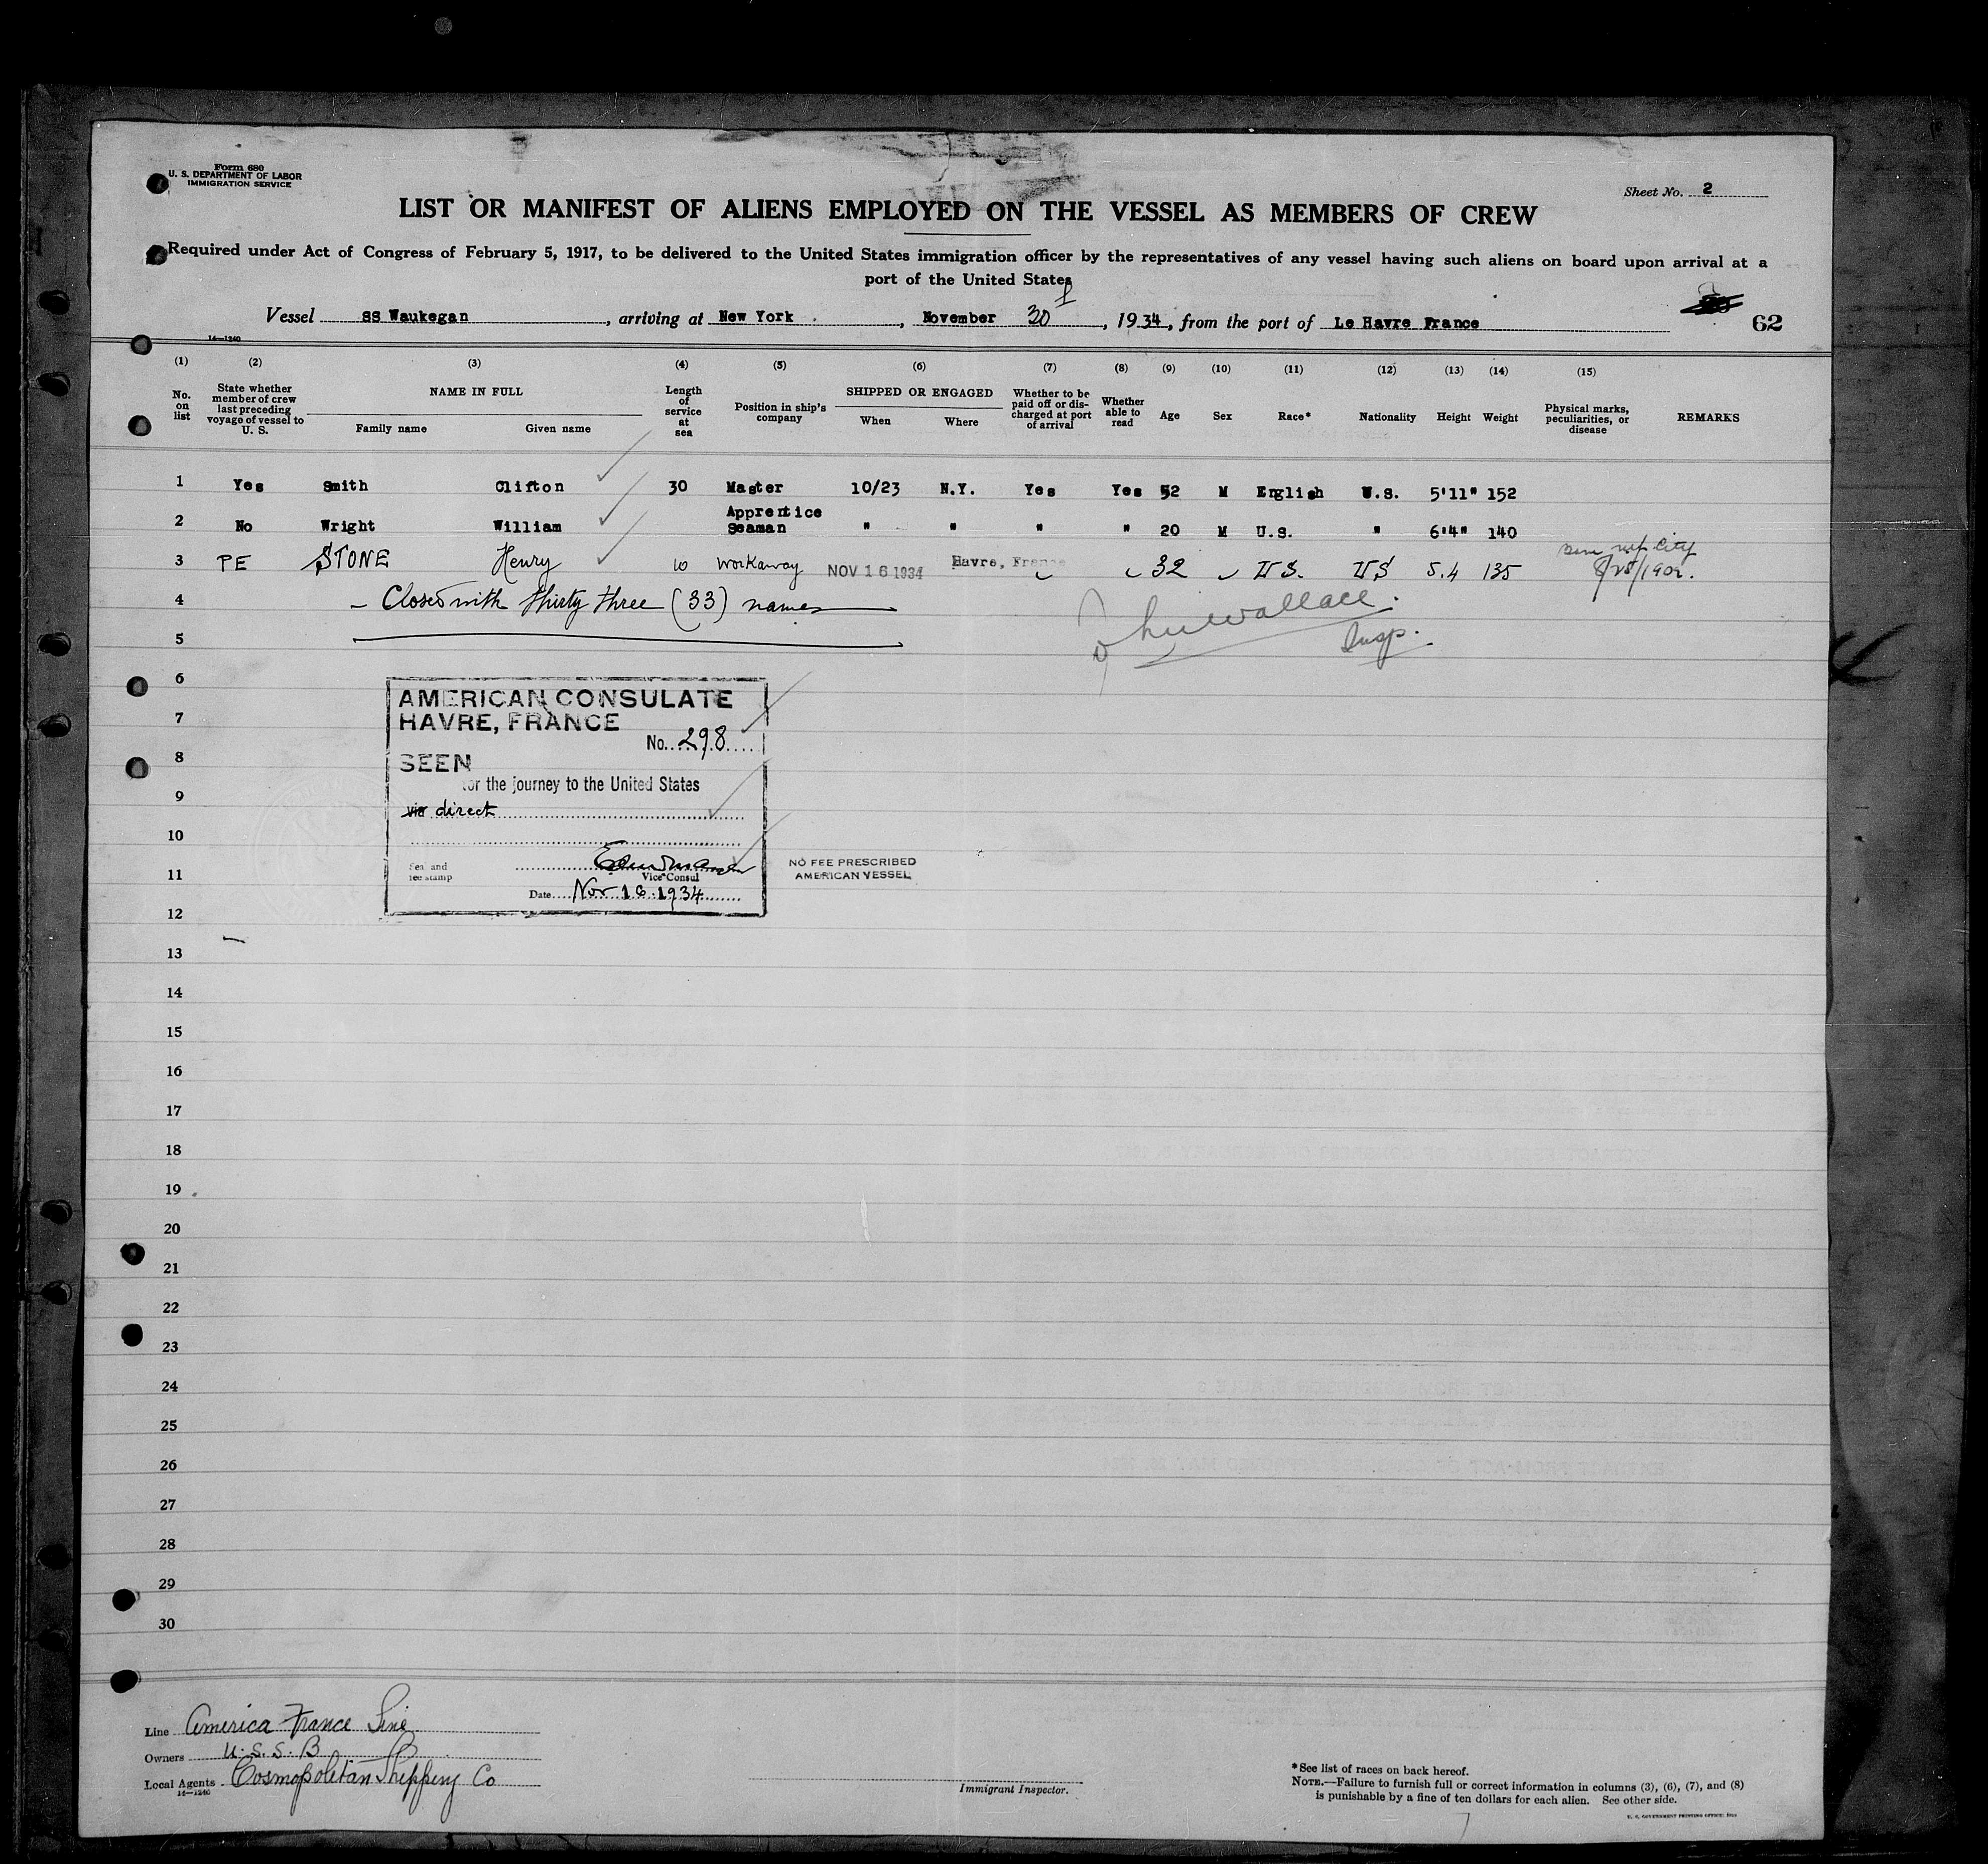 Form 680
U. S. DEPARTMENT OF LABOR
IMMIGRATION SERVICE
Sheet No. 2
LIST OR MANIFEST OF ALIENS EMPLOYED ON THE VESSEL AS MEMBERS OF CREW
Required under Act of Congress of February 5, 1917, to be delivered to the United States immigration officer by the representatives of any vessel having such aliens on board upon arrival at a
port of the United States
Vessel SS Waukegan, arriving at New York, November 30, 1934, from the port of Le Havre France
62
14—1240
(1) (2) (3) (4) (5) (6) (7) (8) (9) (10) (11) (12) (13) (14) (15)
No. on list
State whether member of crew last preceding voyage of vessel to U. S.
NAME IN FULL
Family name Given name
Length of service at sea
Position in ship's company
SHIPPED OR ENGAGED
When Where
Whether to be paid off or discharged at port of arrival
Whether able to read
Age Sex Race* Nationality Height Weight
Physical marks, peculiarities, or disease
REMARKS
1 Yes Smith Clifton 30 Master 10/23 N.Y. Yes Yes 52 M English U.S. 5'11" 152
2 No Wright William Apprentice Seaman " " " " 20 M U.S. " 6'4" 140
3 PE STONE Henry 10 Workaway NOV 16 1934 Havre, France 32 U.S. US 5.4 135 City
4 – Closed with thirty three (33) names
Wallace
Insp.
5
6
AMERICAN CONSULATE
7
HAVRE, FRANCE
No. 298
8
SEEN
for the journey to the United States
9
via direct
10
Seal and
fee stamp
Vice Consul
NO FEE PRESCRIBED
AMERICAN VESSEL
11
Date Nov 16 1934
12
13
14
15
16
17
18
19
20
21
22
23
24
25
26
27
28
29
30
Line America France Line
Owners U.S.S.B
Local Agents Cosmopolitan Shipping Co
14—1240
Immigrant Inspector.
*See list of races on back hereof.
NOTE.—Failure to furnish full or correct information in columns (3), (6), (7), and (8)
is punishable by a fine of ten dollars for each alien. See other side.